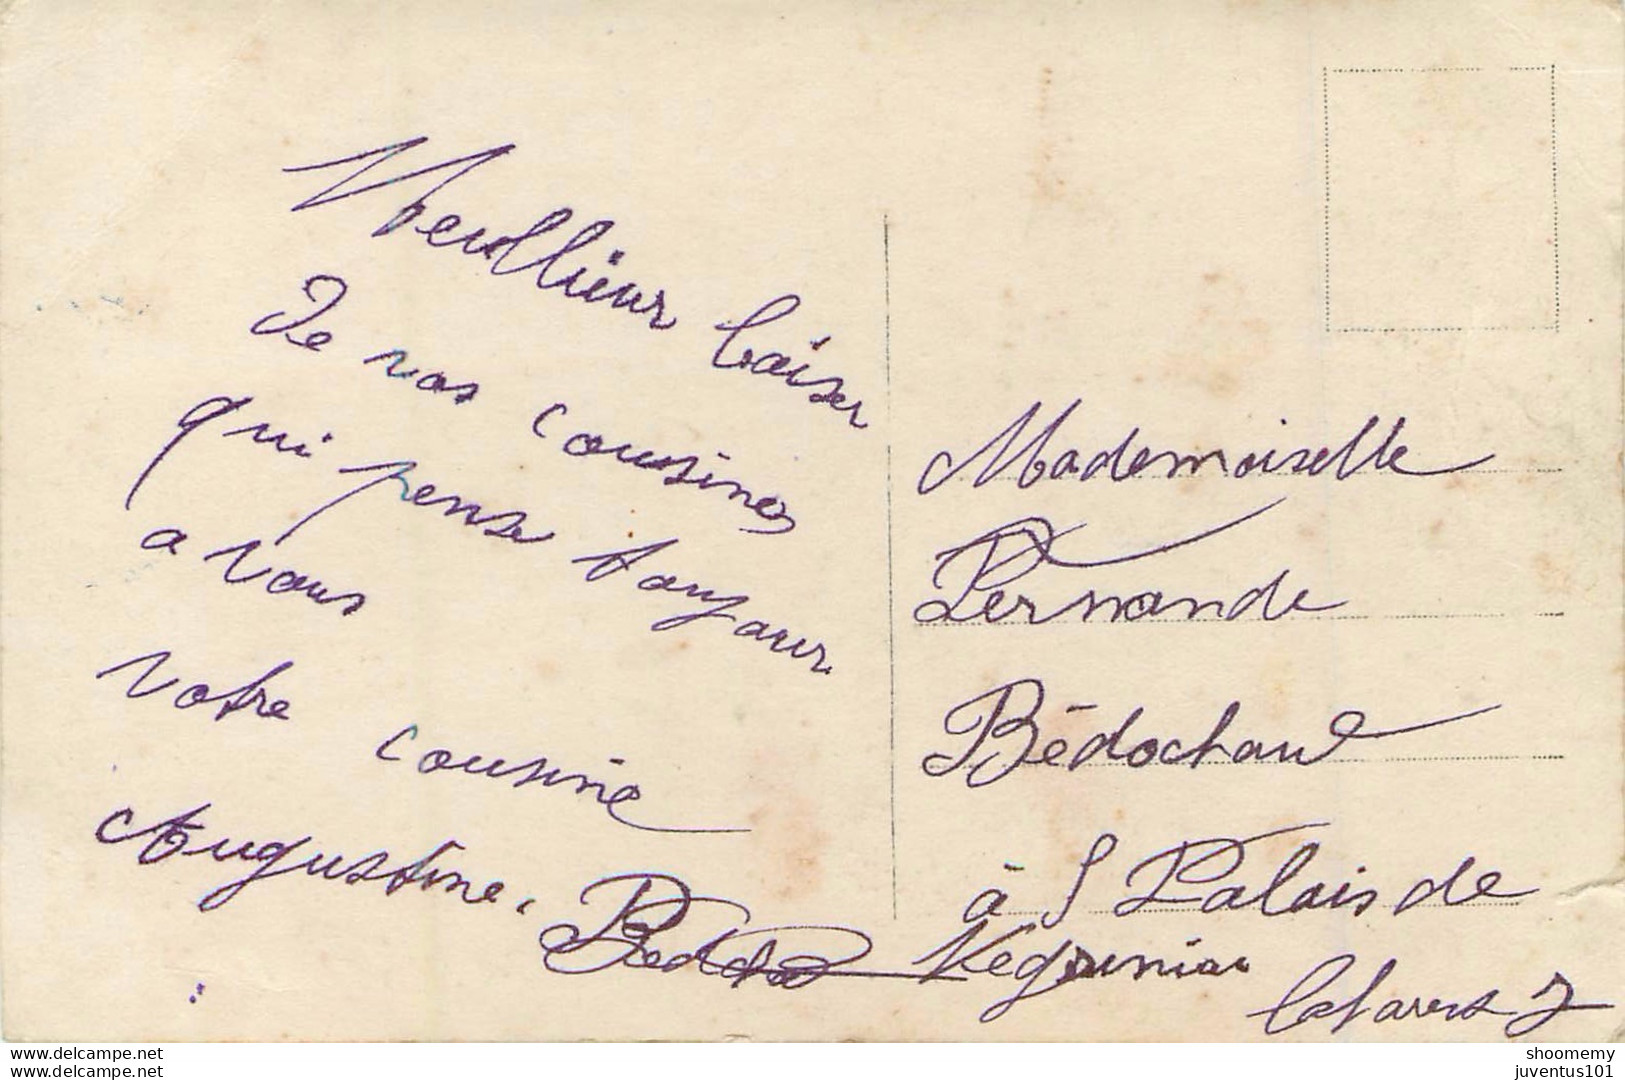 Meullieur baiser
De vos cousines
qui pense toujour
a vous
votre cousine
Augustine.
Mademoiselle
Fernande
Bédochaud
à S Palais de
www.delcampe.net
shoomemy
juventus101